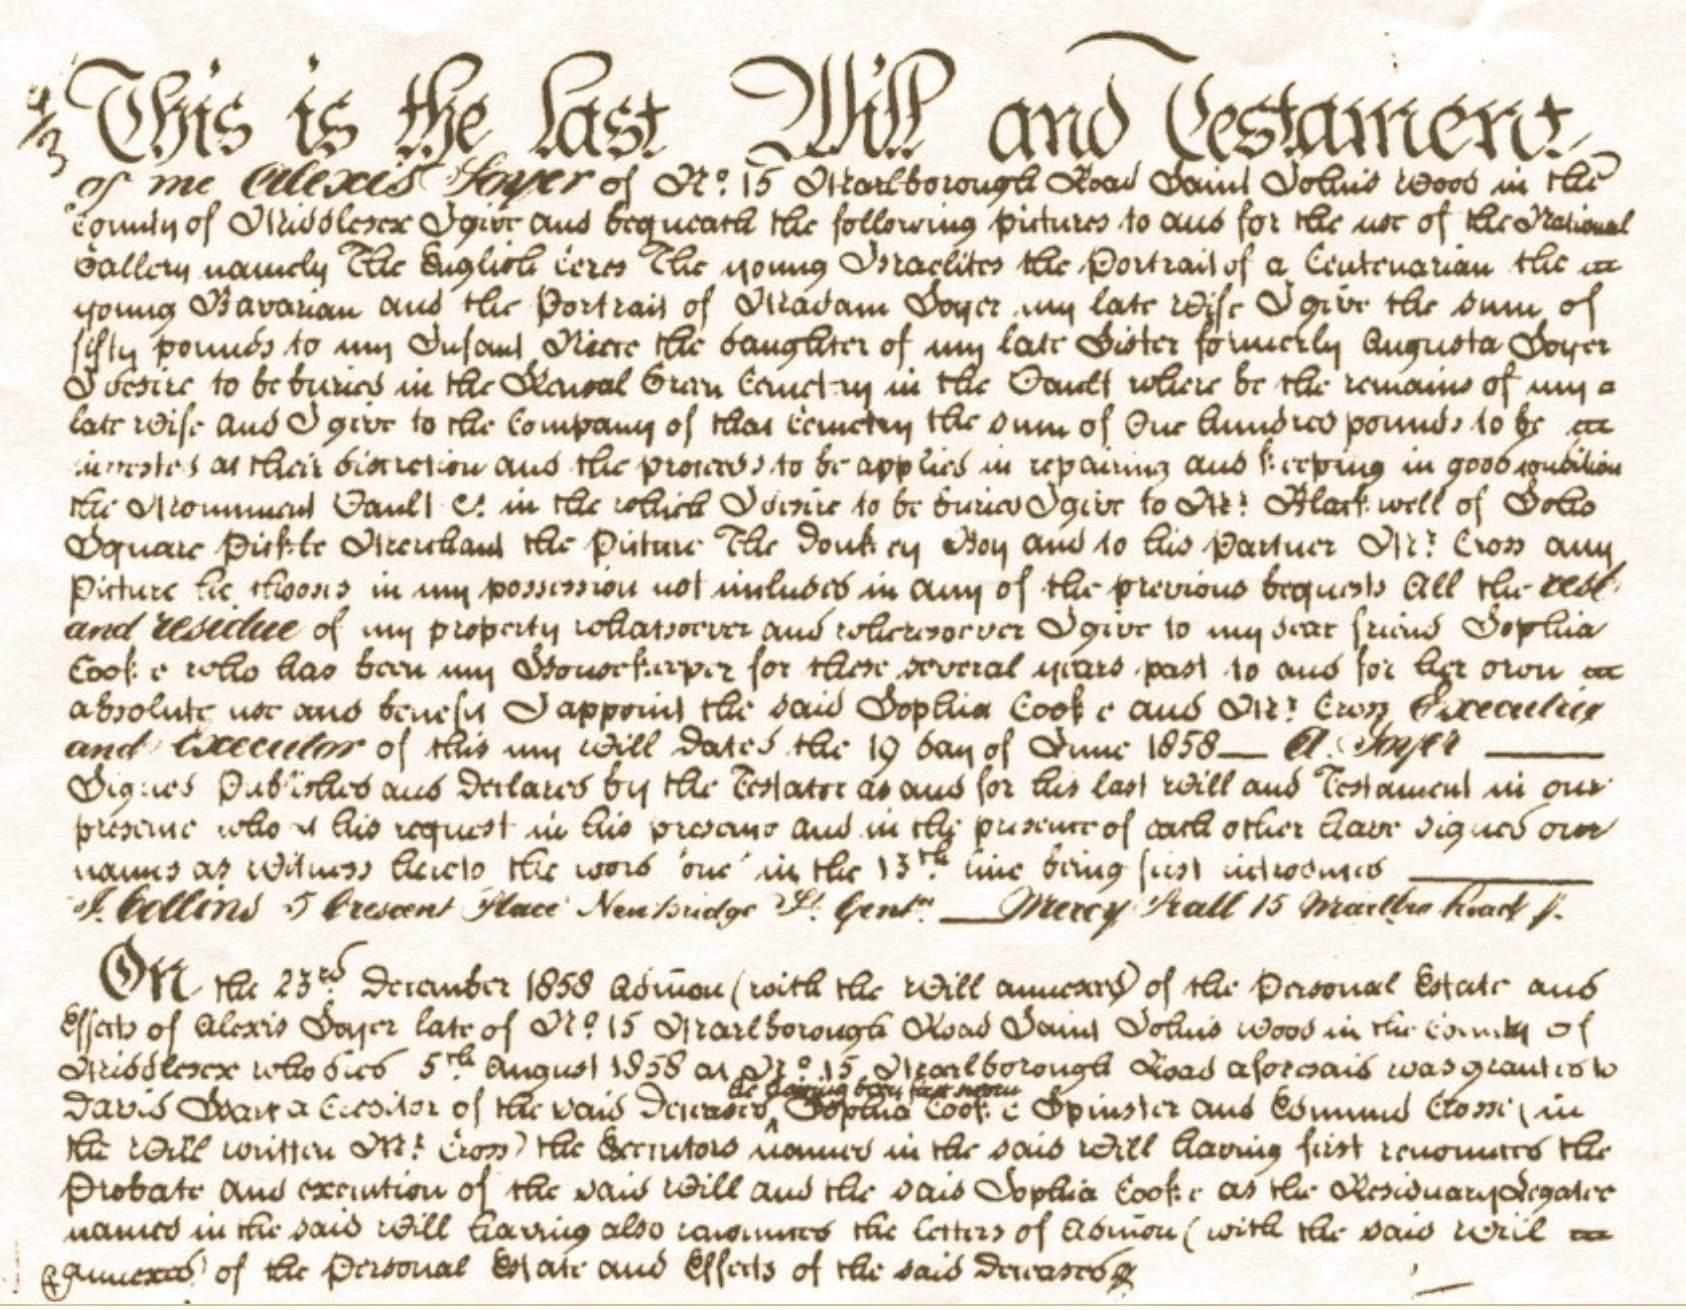 This is the last Will and Testament
of me Alexis Soyer of No. 15 Marlborough Road Saint Johns Wood in the
County of Middlesex I give and bequeath the following pictures to and for the use of the National
Gallery namely The English Ceres The young Israelites the Portrait of a Centenarian the
young Bavarian and the Portrait of Madam Soyer my late Wife I give the sum of
fifty pounds to my Infant Niece the daughter of my late Sister formerly Augusta Soyer
I desire to be buried in the Kensal Green Cemetery in the Vault where be the remains of my
late Wife and I give to the Company of that Cemetery the sum of One hundred pounds to be
invested at their discretion and the proceeds to be applied in repairing and keeping in good condition
the Monument Vault &c. in the which I desire to be buried I give to Mr. Blackwell of Soho
Square Pickle Merchant the Picture The Donkey Boy and to his Partner Mr. Cross any
Picture he chooses in my possession not included in any of the previous bequests All the rest
and residue of my property whatsoever and wheresoever I give to my dear friend Sophia
Cooke who has been my Housekeeper for these several years past to and for her own
absolute use and benefit I appoint the said Sophia Cooke and Mr. Cross Executrix
and Executor of this my Will Dated the 19 day of June 1858 — A. Soyer —
Signed Published and Declared by the Testator as and for his last Will and Testament in our
presence who at his request in his presence and in the presence of each other have signed our
names as Witness hereto the word 'one' in the 13th. line being first introduced —
J. Collins 5 Crescent Place New Bridge St. Gentn. — Mercy Hall 15 Marlbro Road
On the 23rd. December 1858 Admon (with the Will annexed) of the Personal Estate and
Effects of Alexis Soyer late of No. 15 Marlborough Road Saint Johns Wood in the County of
Middlesex who died 5th August 1858 at No. 15 Marlborough Road aforesaid was granted to
he having been first sworn
David Hart a Creditor of the said Deceased, Sophia Cooke Spinster and Edmund Crosse (in
the Will written Mr. Cross) the Executors named in the said Will having first renounced the
Probate and execution of the said Will and the said Sophia Cooke as the Residuary Legatee
named in the said Will having also renounced the Letters of Admon (with the said Will
annexed) of the Personal Estate and Effects of the said deceased